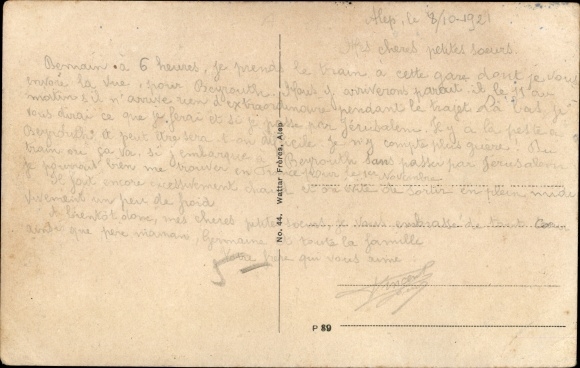 Alep, le 8/10-1921
Mes chères petites soeurs.
Demain à 6 heures, je prends le train a cette gare dont je vous
envoie la vue, pour Beyrouth. Nous y arriverons parait il le 11 au
matin s'il n'arrive rien d'extraordinaire pendant le trajet. Là bas, je
vous dirai ce que je ferai et si je passe par Jérusalem. Il y a la peste à
Beyrouth et peut être sera t on Je n'y compte plus guère! Du
train où ça va, si j'embarque à Beyrouth sans passer par Jérusalem
je pourrais bien me trouver en France pour le 1er Novembre
Il fait encore excessivement chaud et de sortir en plein midi
Vivement un peu de froid
A bientôt donc, mes chères petites soeurs, je vous embrasse de tout
ainsi que père maman, Germaine et toute la famille
Votre frère qui vous aime
No. 44. Wattar Frères, Alep
P 89